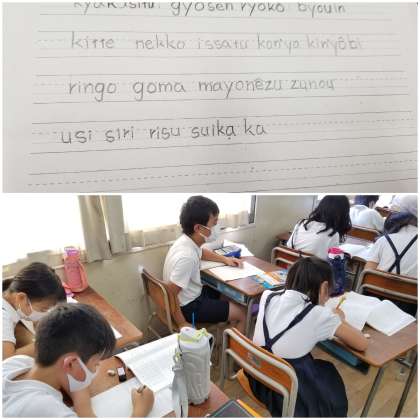 gyosen ryoko byouin
kitte nekko issatu kon'yo kin'yôbi
ringo goma mayonêzu zunou
usi siri risu suika ka